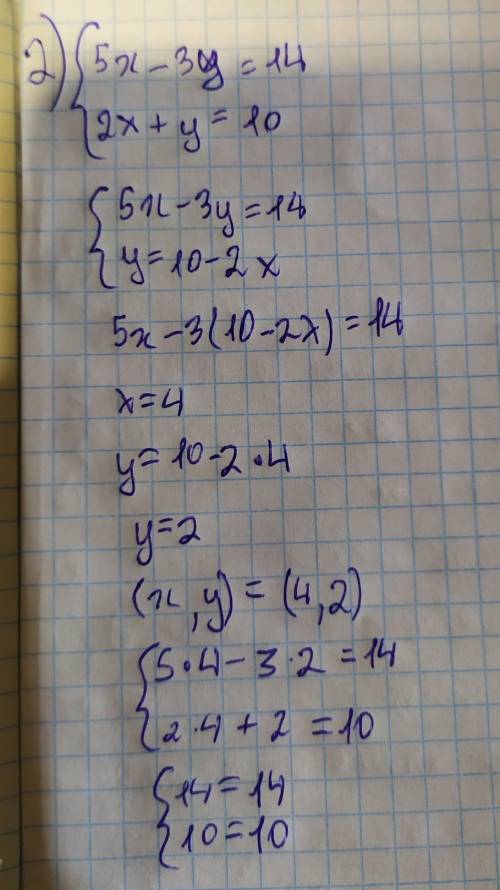 2) { 5x - 3y = 14
2x + y = 10
{ 5x - 3y = 14
y = 10 - 2x
5x - 3(10 - 2x) = 14
x = 4
y = 10 - 2 · 4
y = 2
(x, y) = (4, 2)
{ 5 · 4 - 3 · 2 = 14
2 · 4 + 2 = 10
{ 14 = 14
10 = 10